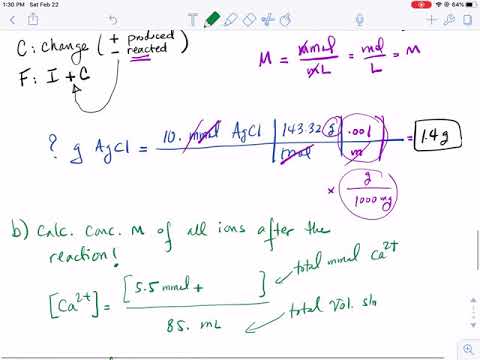 1:30 PM Sat Feb 22
64%
C: Change ( + produced
- reacted )
F: I + C
M = mmol / mL = mol / L = M
? g AgCl = 10. mmol AgCl | 143.32 g | .001 = 1.4 g
mol | m
× g / 1000 mg
b) Calc. Conc. M of all ions after the
reaction!
[Ca2+] = [5.5 mmol + ] total mmol Ca2+
85. mL total Vol. sln